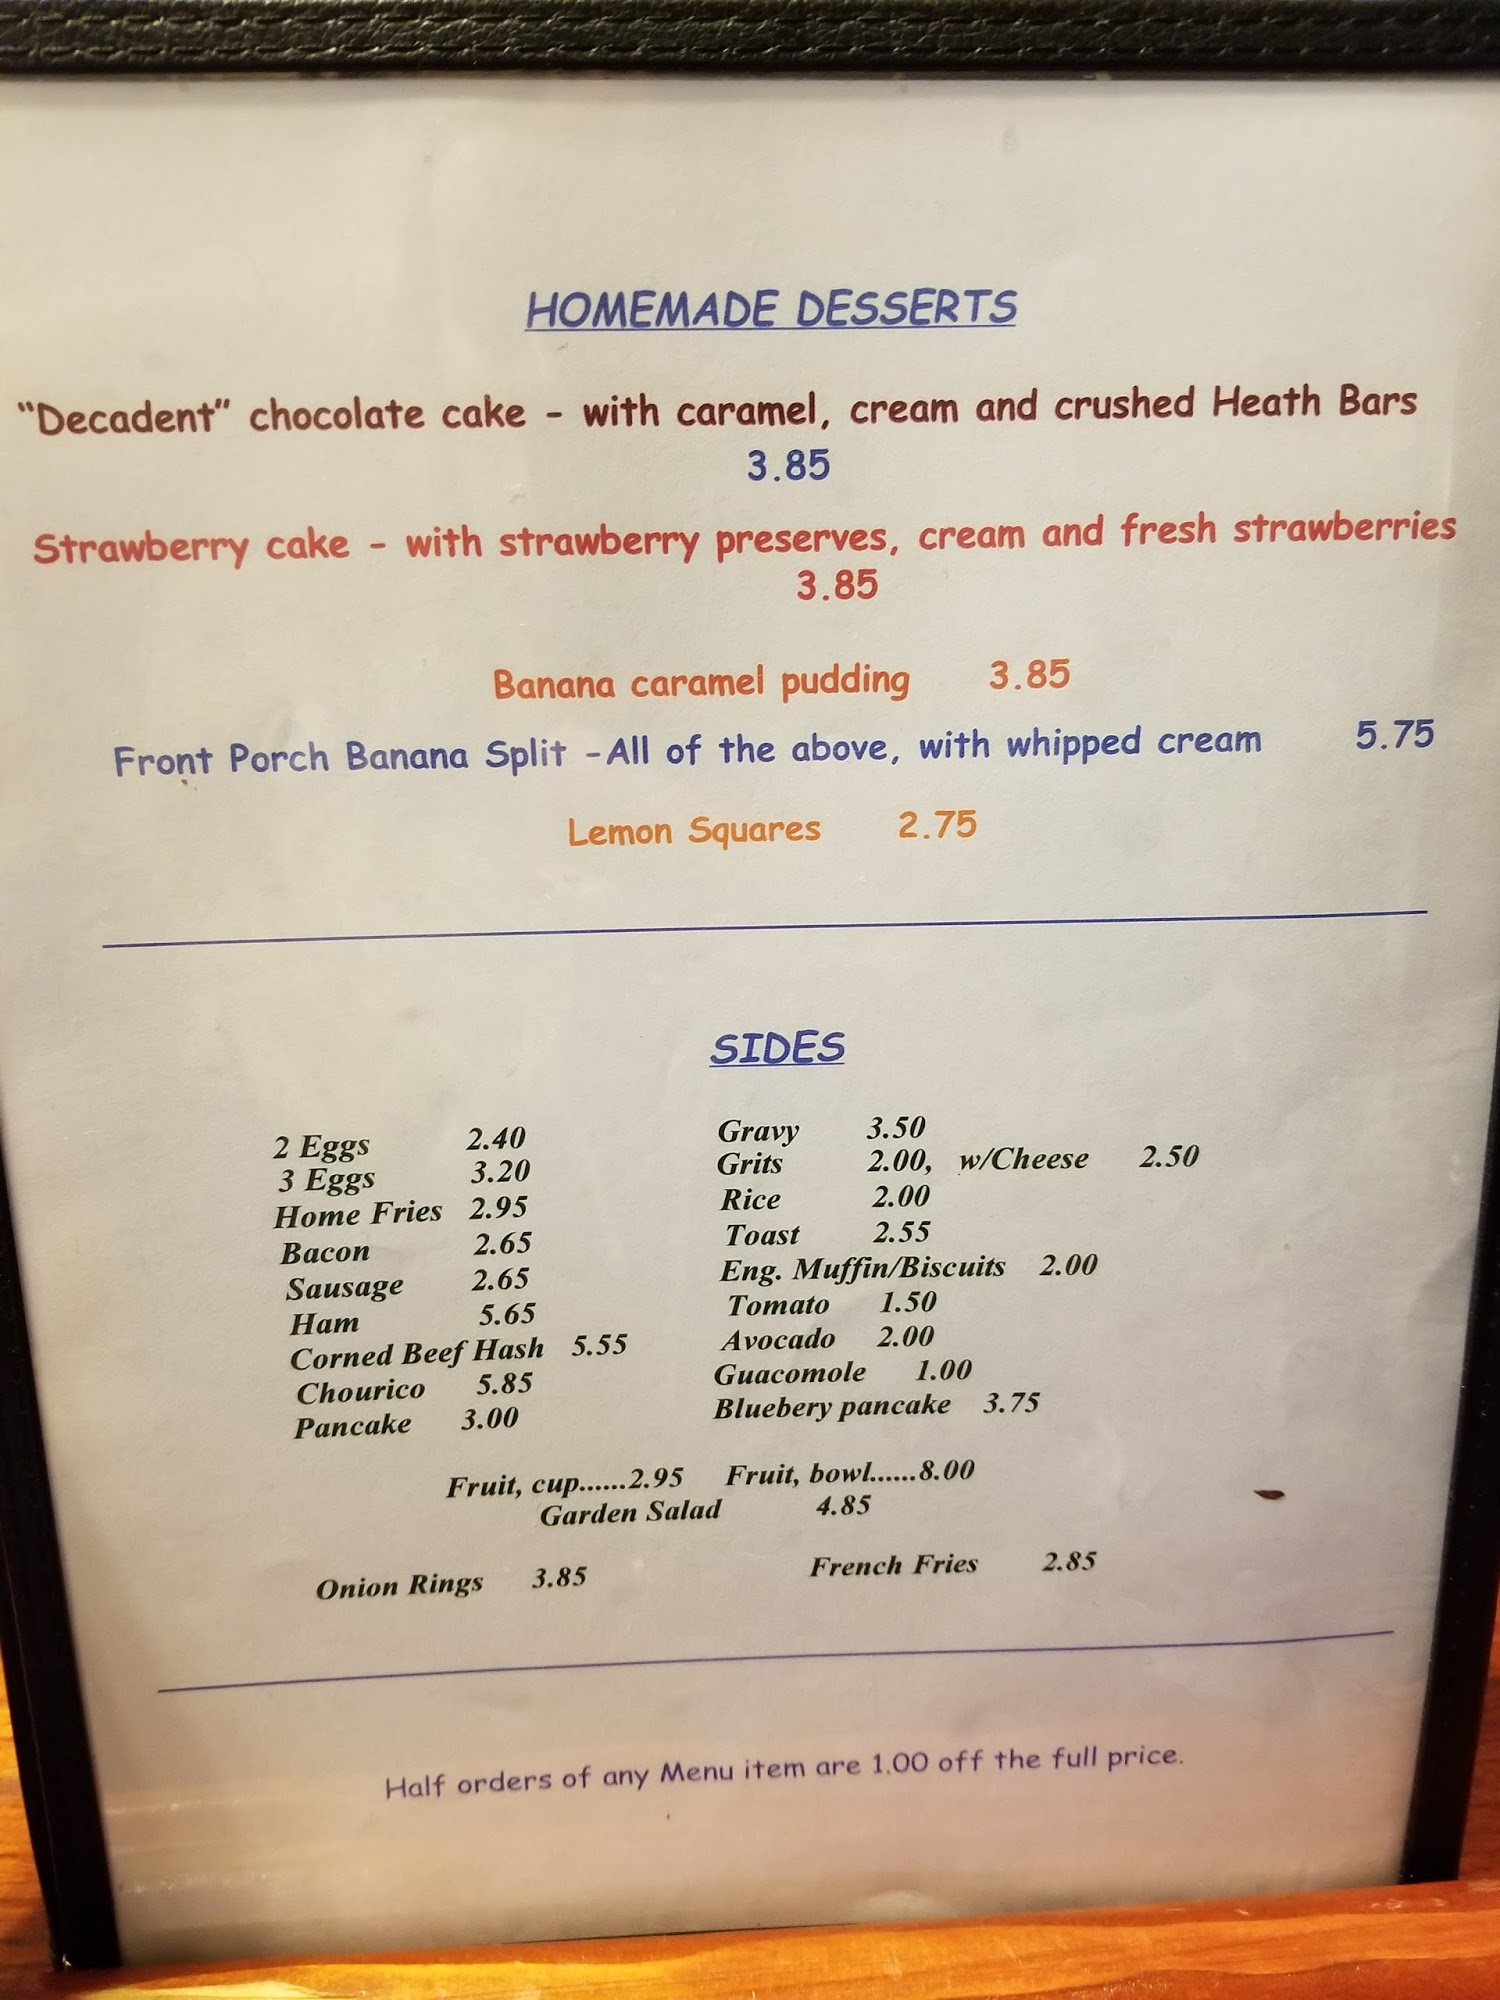 HOMEMADE DESSERTS
"Decadent" chocolate cake - with caramel, cream and crushed Heath Bars
3.85
Strawberry cake - with strawberry preserves, cream and fresh strawberries
3.85
Banana caramel pudding 3.85
Front Porch Banana Split -All of the above, with whipped cream 5.75
Lemon Squares 2.75
SIDES
2 Eggs 2.40
3 Eggs 3.20
Home Fries 2.95
Bacon 2.65
Sausage 2.65
Ham 5.65
Corned Beef Hash 5.55
Chourico 5.85
Pancake 3.00
Gravy 3.50
Grits 2.00, w/Cheese 2.50
Rice 2.00
Toast 2.55
Eng. Muffin/Biscuits 2.00
Tomato 1.50
Avocado 2.00
Guacomole 1.00
Bluebery pancake 3.75
Fruit, cup......2.95 Fruit, bowl......8.00
Garden Salad 4.85
Onion Rings 3.85 French Fries 2.85
Half orders of any Menu item are 1.00 off the full price.